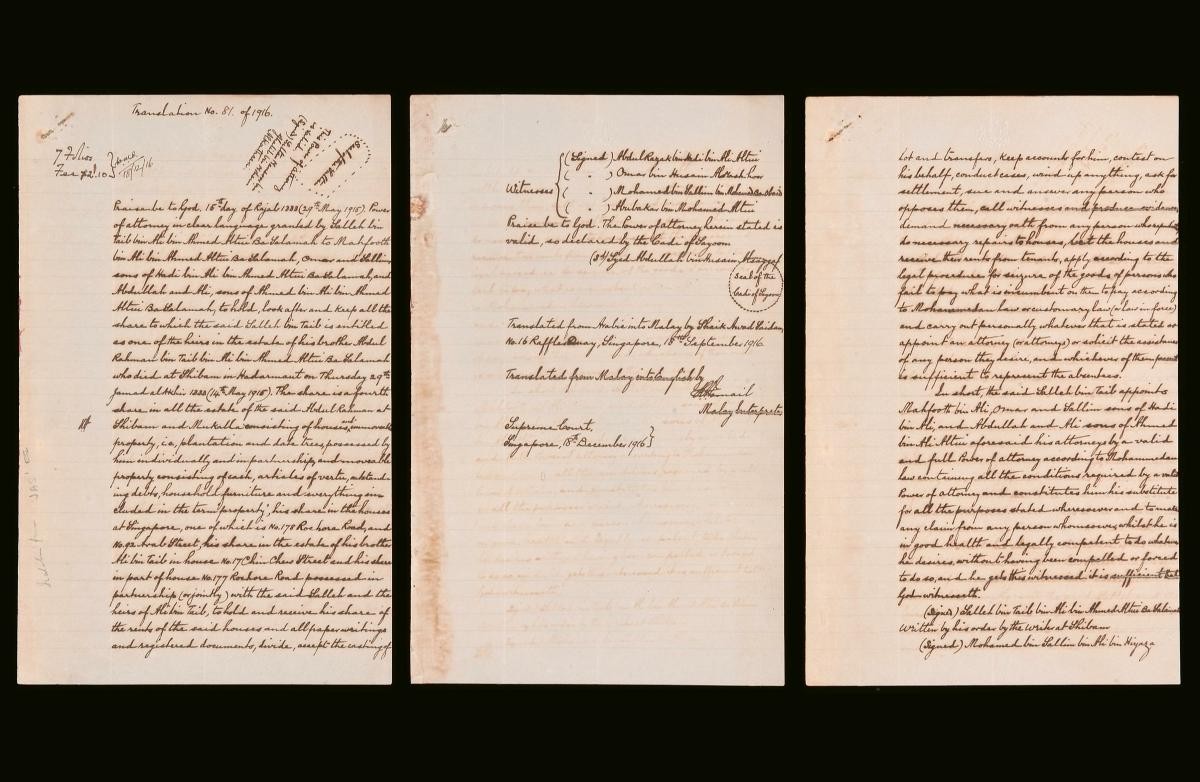 Translation No. 81 of 1916.
7 Folios
Fee $2.10
18/12/16
Praise be to God. 15th day of Rejab 1333 (29th May 1915). Power
of attorney in clear language granted by Salleh bin
Taib bin Ali bin Ahmed Altui Ba Salamah to Mahfooth
bin Ali bin Ahmed Altui Ba Salamah, Omar and Sallim
sons of Hadi bin Ali bin Ahmed Altui Ba Salamah, and
Abdullah and Ali, sons of Ahmed bin Ali bin Ahmed
Altui Ba Salamah, to hold, look after and keep all the
share to which the said Salleh bin Taib is entitled
as one of the heirs in the estate of his brother Abdul
Rahman bin Taib bin Ali bin Ahmed Altui Ba Salamah
who died at Shibam in Hadarmaut on Thursday 29th
Jamad al Akhir 1333 (14th May 1915). The share is a fourth
share in all the estate of the said Abdul Rahman at
Shibam and Mukalla consisting of houses, and immoveable
property, i.e., plantation and date trees, possessed by
him individually and in partnership, and moveable
property consisting of cash, articles of vertu, outstand-
ing debts, household furniture and everything in-
cluded in the term "property", his share in the houses
at Singapore, one of which is No. 178 Rochore Road, and
No. 92 Arab Street, his share in the estate of his brother
Ali bin Taib in house No. 17 Chin Chew Street and his share
in part of house No. 177 Rochore Road possessed in
partnership (or jointly) with the said Salleh and the
heirs of Ali bin Taib, to hold and receive his share of
the rents of the said houses and all paper writings
and registered documents, divide, accept the casting of
Witnesses
(Signed) Abdul Razak bin Hadi bin Ali Altui
( " ) Omar bin Husain
( " ) Mohamed bin Sallim bin Mohamed Ba Obaid
( " ) Abubakar bin Mohamed Altui
Praise be to God. The Power of attorney herein stated is
valid, so declared by the Cadi of Sayoon
(Sd) Syed Abdullah bin Husain
Seal of the
Cadi of Sayoon
Translated from Arabic into Malay by Shaik Awad Saidan,
No. 16 Raffles Quay, Singapore, 18th September 1916.
Translated from Malay into English by
Malay Interpreter
Supreme Court,
Singapore, 18th December 1916
lot and transfers, keep accounts for him, contest on
his behalf, conduct cases, wind up anything, ask for
settlement, sue and answer any person who
opposes them, call witnesses and produce evidence,
demand necessary oath from any person
do necessary repairs to houses, let the houses and
receive their rents from tenants, apply according to the
legal procedure for seizure of the goods of persons who
fail to pay what is incumbent on them to pay according
to Mohammedan law or customary law (or law in force)
and carry out personally whatever that is stated or
appoint an attorney (or attorneys) or solicit the assistance
of any person they desire, and whichever of them present
is sufficient to represent the absentees.
In short, the said Salleh bin Taib appoints
Mahfooth bin Ali, Omar and Sallim sons of Hadi
bin Ali, and Abdullah and Ali sons of Ahmed
bin Ali Altui aforesaid his attorneys by a valid
and full Power of attorney according to Mohammedan
law containing all the conditions required by a valid
Power of attorney and constitutes him his substitute
for all the purposes stated wheresoever and to make
any claim from any person whomsoever, whilst he is
in good health and legally competent to do whatever
he desires, without having been compelled or forced
to do so, and he gets this witnessed it is sufficient that
God witnesseth.
(Signed) Salleh bin Taib bin Ali bin Ahmed Altui Ba Salamah
Written by his order by the Writer at Shibam
(Signed) Mohamed bin Sallim bin Ali bin Hiyaza